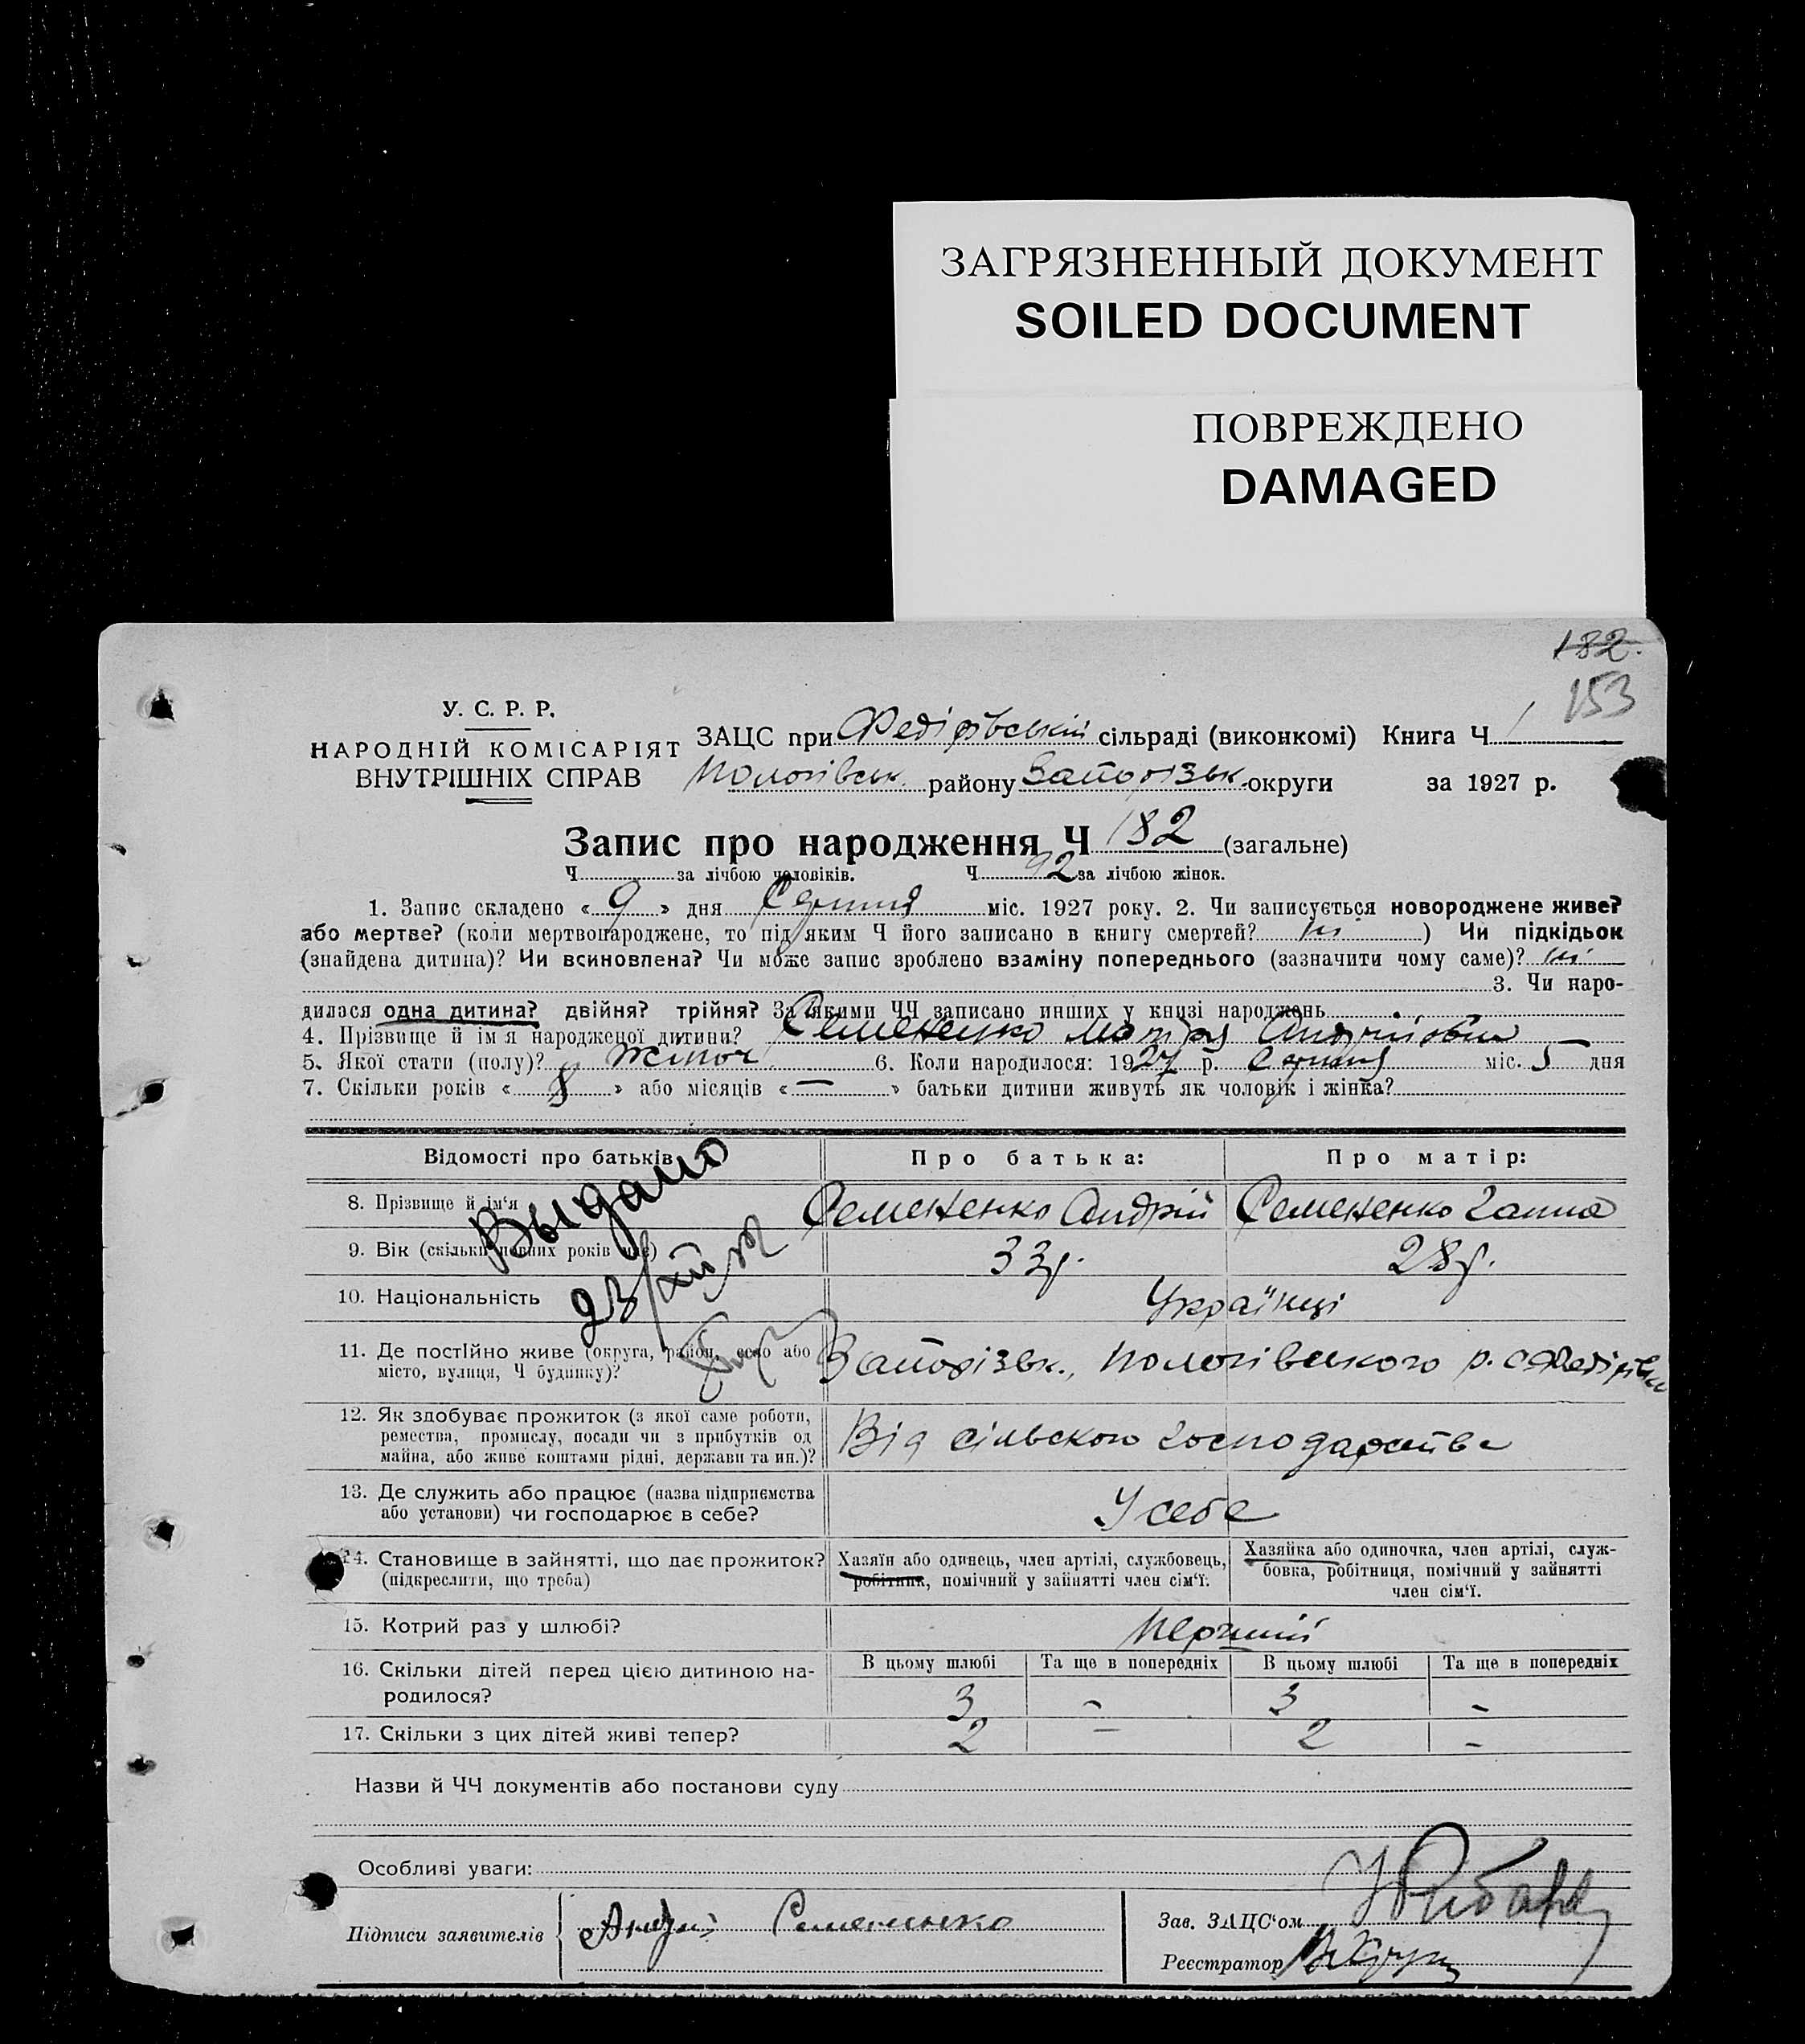 ЗАГРЯЗНЕННЫЙ ДОКУМЕНТ
SOILED DOCUMENT
ПОВРЕЖДЕНО
DAMAGED
182.
153
У. С. Р. Р.
НАРОДНІЙ КОМІСАРІЯТ
ВНУТРІШНІХ СПРАВ
ЗАЦС при Федірівській сільраді (виконкомі) Книга Ч 1
Пологівськ. району Запорізьк. округи за 1927 р.
Запис про народження Ч 182 (загальне)
Ч за лічбою чоловіків. Ч 92 за лічбою жінок.
1. Запис складено « 9 » дня Серпня міс. 1927 року. 2. Чи записується новороджене живе?
або мертве? (коли мертвонароджене, то під яким Ч його записано в книгу смертей? ні ) Чи підкідьок
(знайдена дитина)? Чи всиновлена? Чи може запис зроблено взаміну попереднього (зазначити чому саме)? ні
3. Чи наро-
дилася одна дитина? двійня? трійня? За якими ЧЧ записано инших у книзі народжень
4. Прізвище й ім'я народженої дитини? Семененко Мотря Андріївна
5. Якої стати (полу)? жіноч. 6. Коли народилося: 1927 р. Серпня міс. 5 дня
7. Скільки років « 8 » або місяців « — » батьки дитини живуть як чоловік і жінка?
Відомості про батьків Про батька: Про матір:
Выдано
8. Прізвище й ім'я Семененко Андрій Семененко Ганна
9. Вік (скільки повних років має) 33р. 28р.
10. Національність Українці
11. Де постійно живе (округа, район, село або Запорізьк., Пологівського р. с. Федірівка
місто, вулиця, Ч будинку)?
12. Як здобуває прожиток (з якої саме роботи,
ремества, промислу, посади чи з прибутків од Від сільского господарства
майна, або живе коштами рідні, держави та ин.)?
13. Де служить або працює (назва підприємства У себе
або установи) чи господарює в себе?
14. Становище в зайнятті, що дає прожиток? Хазяїн або одинець, член артілі, службовець, Хазяйка або одиночка, член артілі, служ-
(підкреслити, що треба) робітник, помічний у зайнятті член сім'ї. бовка, робітниця, помічний у зайнятті
член сім'ї.
15. Котрий раз у шлюбі? перший
16. Скільки дітей перед цією дитиною на- В цьому шлюбі Та ще в попередніх В цьому шлюбі Та ще в попередніх
родилося? 3 – 3 –
17. Скільки з цих дітей живі тепер? 2 – 2 –
Назви й ЧЧ документів або постанови суду
Особливі уваги:
Підписи заявителів Андрій Семененко
Зав. ЗАЦС'ом
Реєстратор